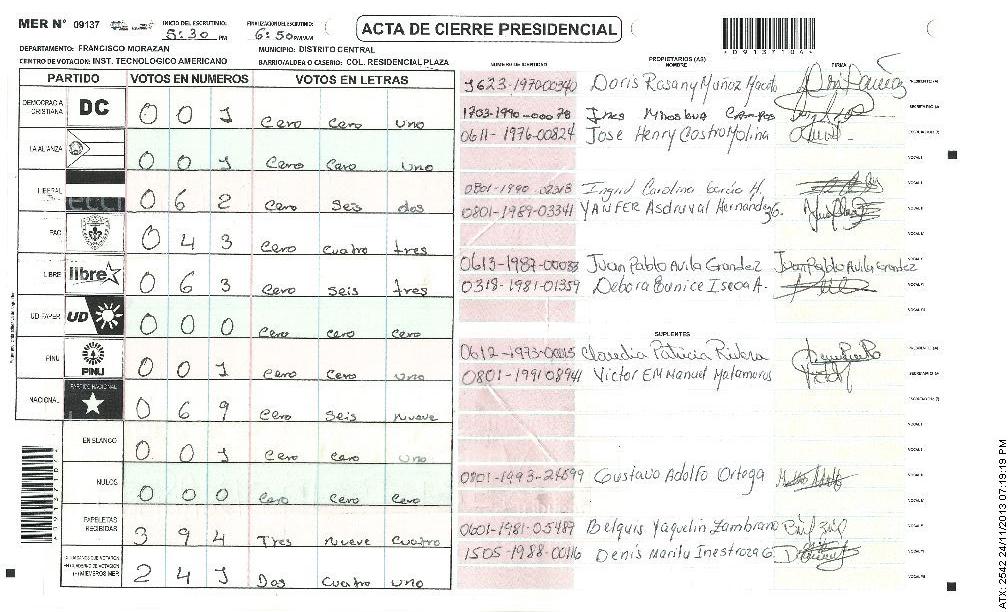 MER N° 09137
INICIO DEL ESCRUTINIO: 5:30 PM
FINALIZACION DEL ESCRUTINIO: 6:50 PM/A.M
ACTA DE CIERRE PRESIDENCIAL
DEPARTAMENTO: FRANCISCO MORAZAN
MUNICIPIO: DISTRITO CENTRAL
CENTRO DE VOTACION: INST. TECNOLOGICO AMERICANO
BARRIO/ALDEA O CASERIO: COL. RESIDENCIAL PLAZA
PARTIDO VOTOS EN NUMEROS VOTOS EN LETRAS
DEMOCRACIA CRISTIANA DC 0 0 1 Cero Cero uno
LA ALIANZA 0 0 1 Cero Cero uno
LIBERAL 0 6 2 Cero Seis dos
PAC 0 4 3 Cero Cuatro tres
LIBRE libre 0 6 3 Cero Seis tres
UD-FAPER UD 0 0 0 Cero Cero Cero
PINU PINU 0 0 1 Cero Cero uno
NACIONAL PARTIDO NACIONAL 0 6 9 Cero Seis nueve
EN BLANCO 0 0 1 Cero Cero uno
NULOS 0 0 0 Cero Cero Cero
PAPELETAS RECIBIDAS 3 9 4 Tres Nueve Cuatro
MIEMBROS MER 2 4 1 Dos Cuatro uno
NUMERO DE IDENTIDAD PROPIETARIOS (AS) NOMBRE FIRMA
1623-1970-00340 Doris Rosany Muñoz
1703-1990-00078 Ines
0611-1976-00824 Jose Henry Castro Molina
0801-1990-02313 Ingrid Carolina Garcia H.
0801-1989-03341 YANFER Asdruval Hernandez G.
0613-1987-00033 Juan Pablo Avila Grandez Juan Pablo Avila Grandez
0318-1981-01359 Debora Eunice Iseoa A.
SUPLENTES
0612-1973-00015 Claudia Patricia Rivera
0801-1991-08941 Victor EManuel Matamoros
0801-1993-24599 Gustavo Adolfo Ortega
0601-1981-05489 Belquis Yaquelin Zambrano
1505-1988-00116 Denis Marilu Inestroza G.
ATX: 2542 24/11/2013 07:19:19 PM